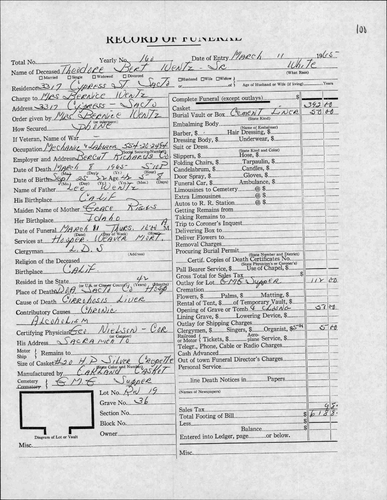 100
RECORD OF FUNERAL
Total No. Yearly No. 166 Date of Entry March 11 1965
Name of Deceased Theodore Bert Wentz - Jr. White
Married Single Widowed Divorced Husband Wife Widow (What Race)
Residence 3317 Cypress St Sacto Age of Husband or Wife (if living)
Charge to Mrs Bernice Wentz
Address 3317 Cypress - Sacto
Order given by Mrs Bernice Wentz
How Secured Phone
If Veteran, Name of War
Occupation Mechanic
Employer and Address Richards Co
Date of Death March 8 1965
Date of Birth Sept 22
Name of Father Lee Wentz
His Birthplace Calif
Maiden Name of Mother Grace Riggs
Her Birthplace Idaho
Date of Funeral March 11 Thurs
Services at Harper Weaver Mort.
Clergyman L.D.S
Religion of the Deceased
Birthplace Calif
Resided in the State 42
Place of Death Sacto Co Hosp
Cause of Death Cirrhosis Liver
Contributory Causes Chronic
Alcoholism
Certifying Physician Geo Nielsen - Cor
His Address Sacramento
Motor Ship Remains to
Size of Casket H D Silver Crepette
Manufactured by Oakland Casket
Cemetery Crematory Sunper
Lot No. 19
Grave No. 36
Section No.
Block No.
Owner
Diagram of Lot or Vault
Misc.
Complete Funeral (except outlays)
Casket 392 00
Burial Vault or Box Cement Liner 50 00
(State Kind)
Embalming Body
(Name of Embalmer)
Barber, $ Hair Dressing, $
Dressing Body, $ Underwear, $
Suit or Dress
(State Kind and Color)
Slippers, $ Hose, $
Folding Chairs, $ Tarpaulin, $
Candelabrum, $ Candles, $
Door Spray, $ Gloves, $
Funeral Car, $ Ambulance, $
Limousines to Cemetery @ $
Extra Limousines @ $
Autos to R. R. Station @ $
Getting Remains from
Taking Remains to
Trip to Coroner's Inquest
Delivering Box to
Deliver Flowers to
Removal Charges
Procuring Burial Permit
Certif. Copies of Death Certificates No.
Pall Bearer Service, $ Use of Chapel, $
Gross Total for Sales Tax
Outlay for Lot
Cremation
Flowers, $ Palms, $ Matting, $
Rental of Tent, $ of Temporary Vault, $
Opening of Grave or Tomb
Lining Grave, $ Lowering Device, $
Outlay for Shipping Charges
Clergymen, $ Singers, $ Organist, $ 5 00
Railroad or Motor } Tickets, $ Auto-plane Service, $
Telegr., Phone, Cable or Radio Charges
Cash Advanced
Out of town Funeral Director's Charges
Personal Service
Line Death Notices in Papers
(Names of Newspapers)
Sales Tax
Total Footing of Bill $
Less
Balance
Entered into Ledger, page or below.
Misc.